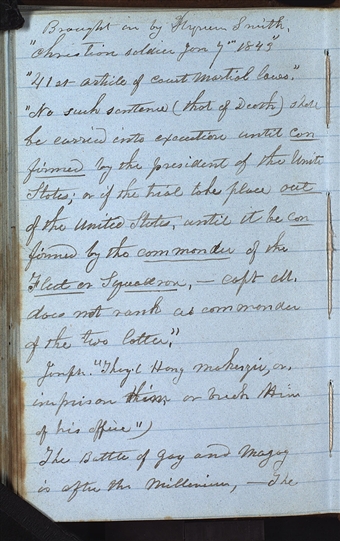 Brought in by Hyrum Smith,
"Christian soldier Jan 7th 1843"
"41st article of court Martial laws."
"No such sentence (that of Death) shall
be carried into execution until con
firmed by the president of the Unite
States; or if the trial take place out
of the United States, until it be con
firmed by the commander of the
Fleet or Squadron, — capt M.
does not rank as commander
of the two latter."
Joseph. "They'l Hang makenzie, or,
imprison him, or break Him
of his office")
The Battle of Gog and Magog
is after the Millenium, — The